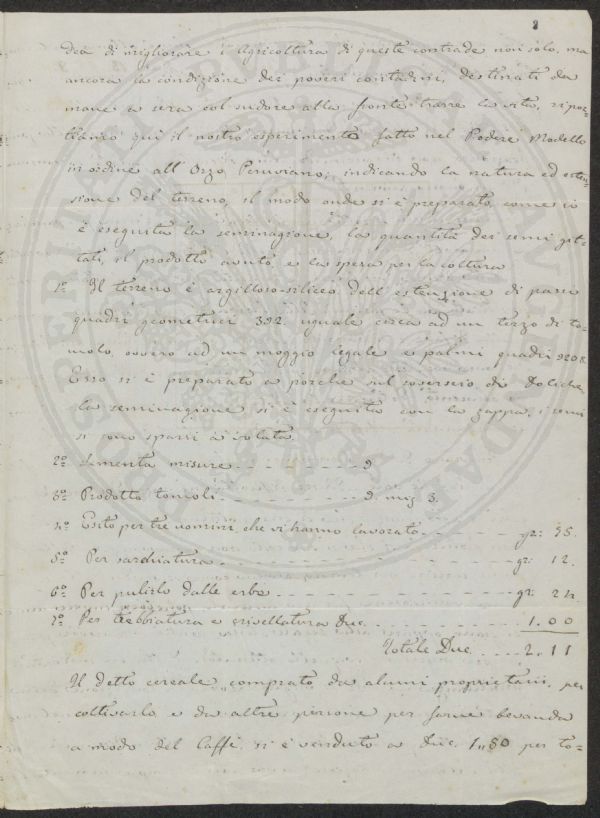 8
dea di migliorare l'Agricoltura di queste contrade non solo, ma
ancora la condizione dei poveri contadini, destinati da
mane a sera col sudore alla fronte trarre la vita, ripor-
tiamo qui il nostro esperimento fatto nel Podere Modello
in ordine all'Orzo Peruviano, indicando la natura ed esten-
sione del terreno, il modo onde si è preparato, come si
è eseguita la seminagione, la quantità dei semi git-
tati, il prodotto avuto, e la spesa per la coltura
1º Il terreno è argilloso-siliceo dell'estenzione di passi
quadri geometrici 392. uguale circa ad un terzo di to-
molo, ovvero ad un moggio legale e palmi quadri
Esso si è preparato a porche sul soverscio di
la seminagione si è eseguita con la zappa, i semi
si sono sparsi a volata
2º Sementa misure - - - - - - - - - 9
3º Prodotto tomoli - - - - - - - - - 9. mis 3.
4º Esito per tre uomini che vi hanno lavorato - - - - - gr: 75.
5º Per sarchiatura - - - - - - - - - gr: 12.
6º Per pulirlo dalle erbe - - - - - - - - - gr: 24
7º Per trebbiatura e crivellatura Duc. - - - - - - - - - 1.00
Totale Duc - - - - 2.11
Il detto cereale comprato da alcuni proprietarii, per
coltivarlo e da altre persone per farne bevanda
a modo del Caffè, si è venduto a Duc. 1,,80 per to-